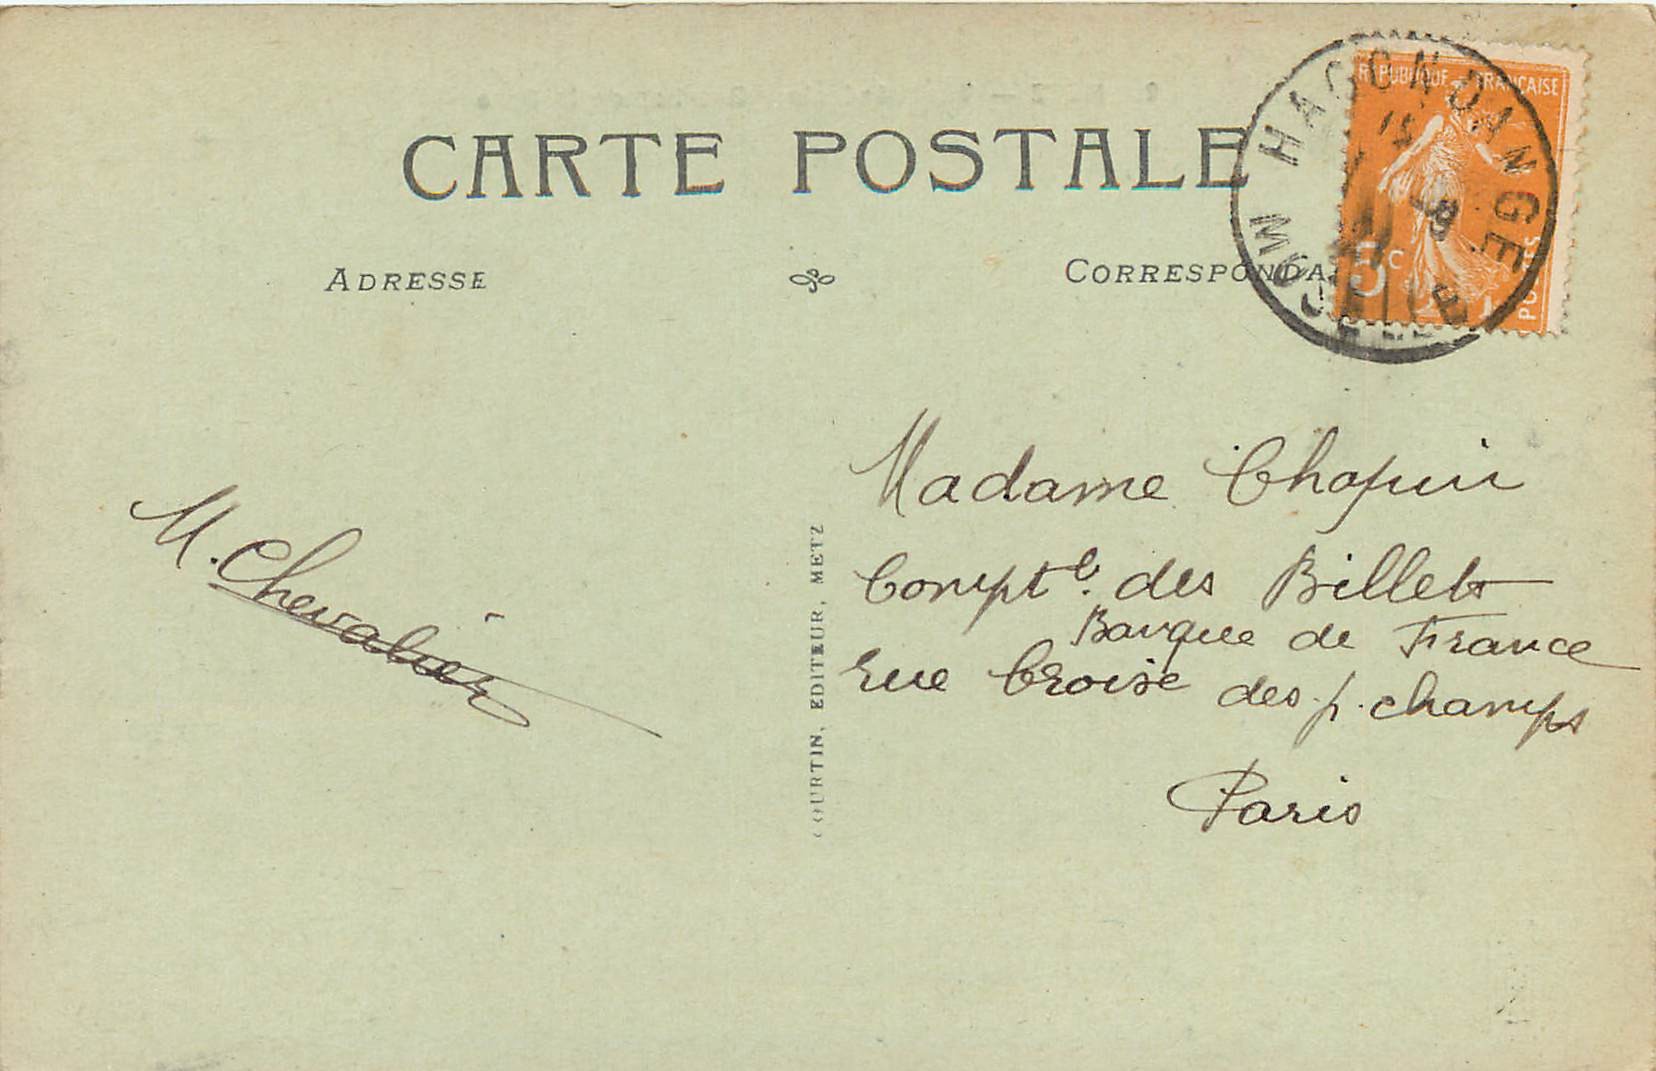 CARTE POSTALE
ADRESSE
CORRESPONDA
HAGONDANGE
MOSELLE
REPUBLIQUE FRANÇAISE
5c
POSTES
M. Chevalier
COURTIN, EDITEUR, METZ
Madame Chopin
Compt.e des Billets
Banque de France
rue Croix des p. champs
Paris